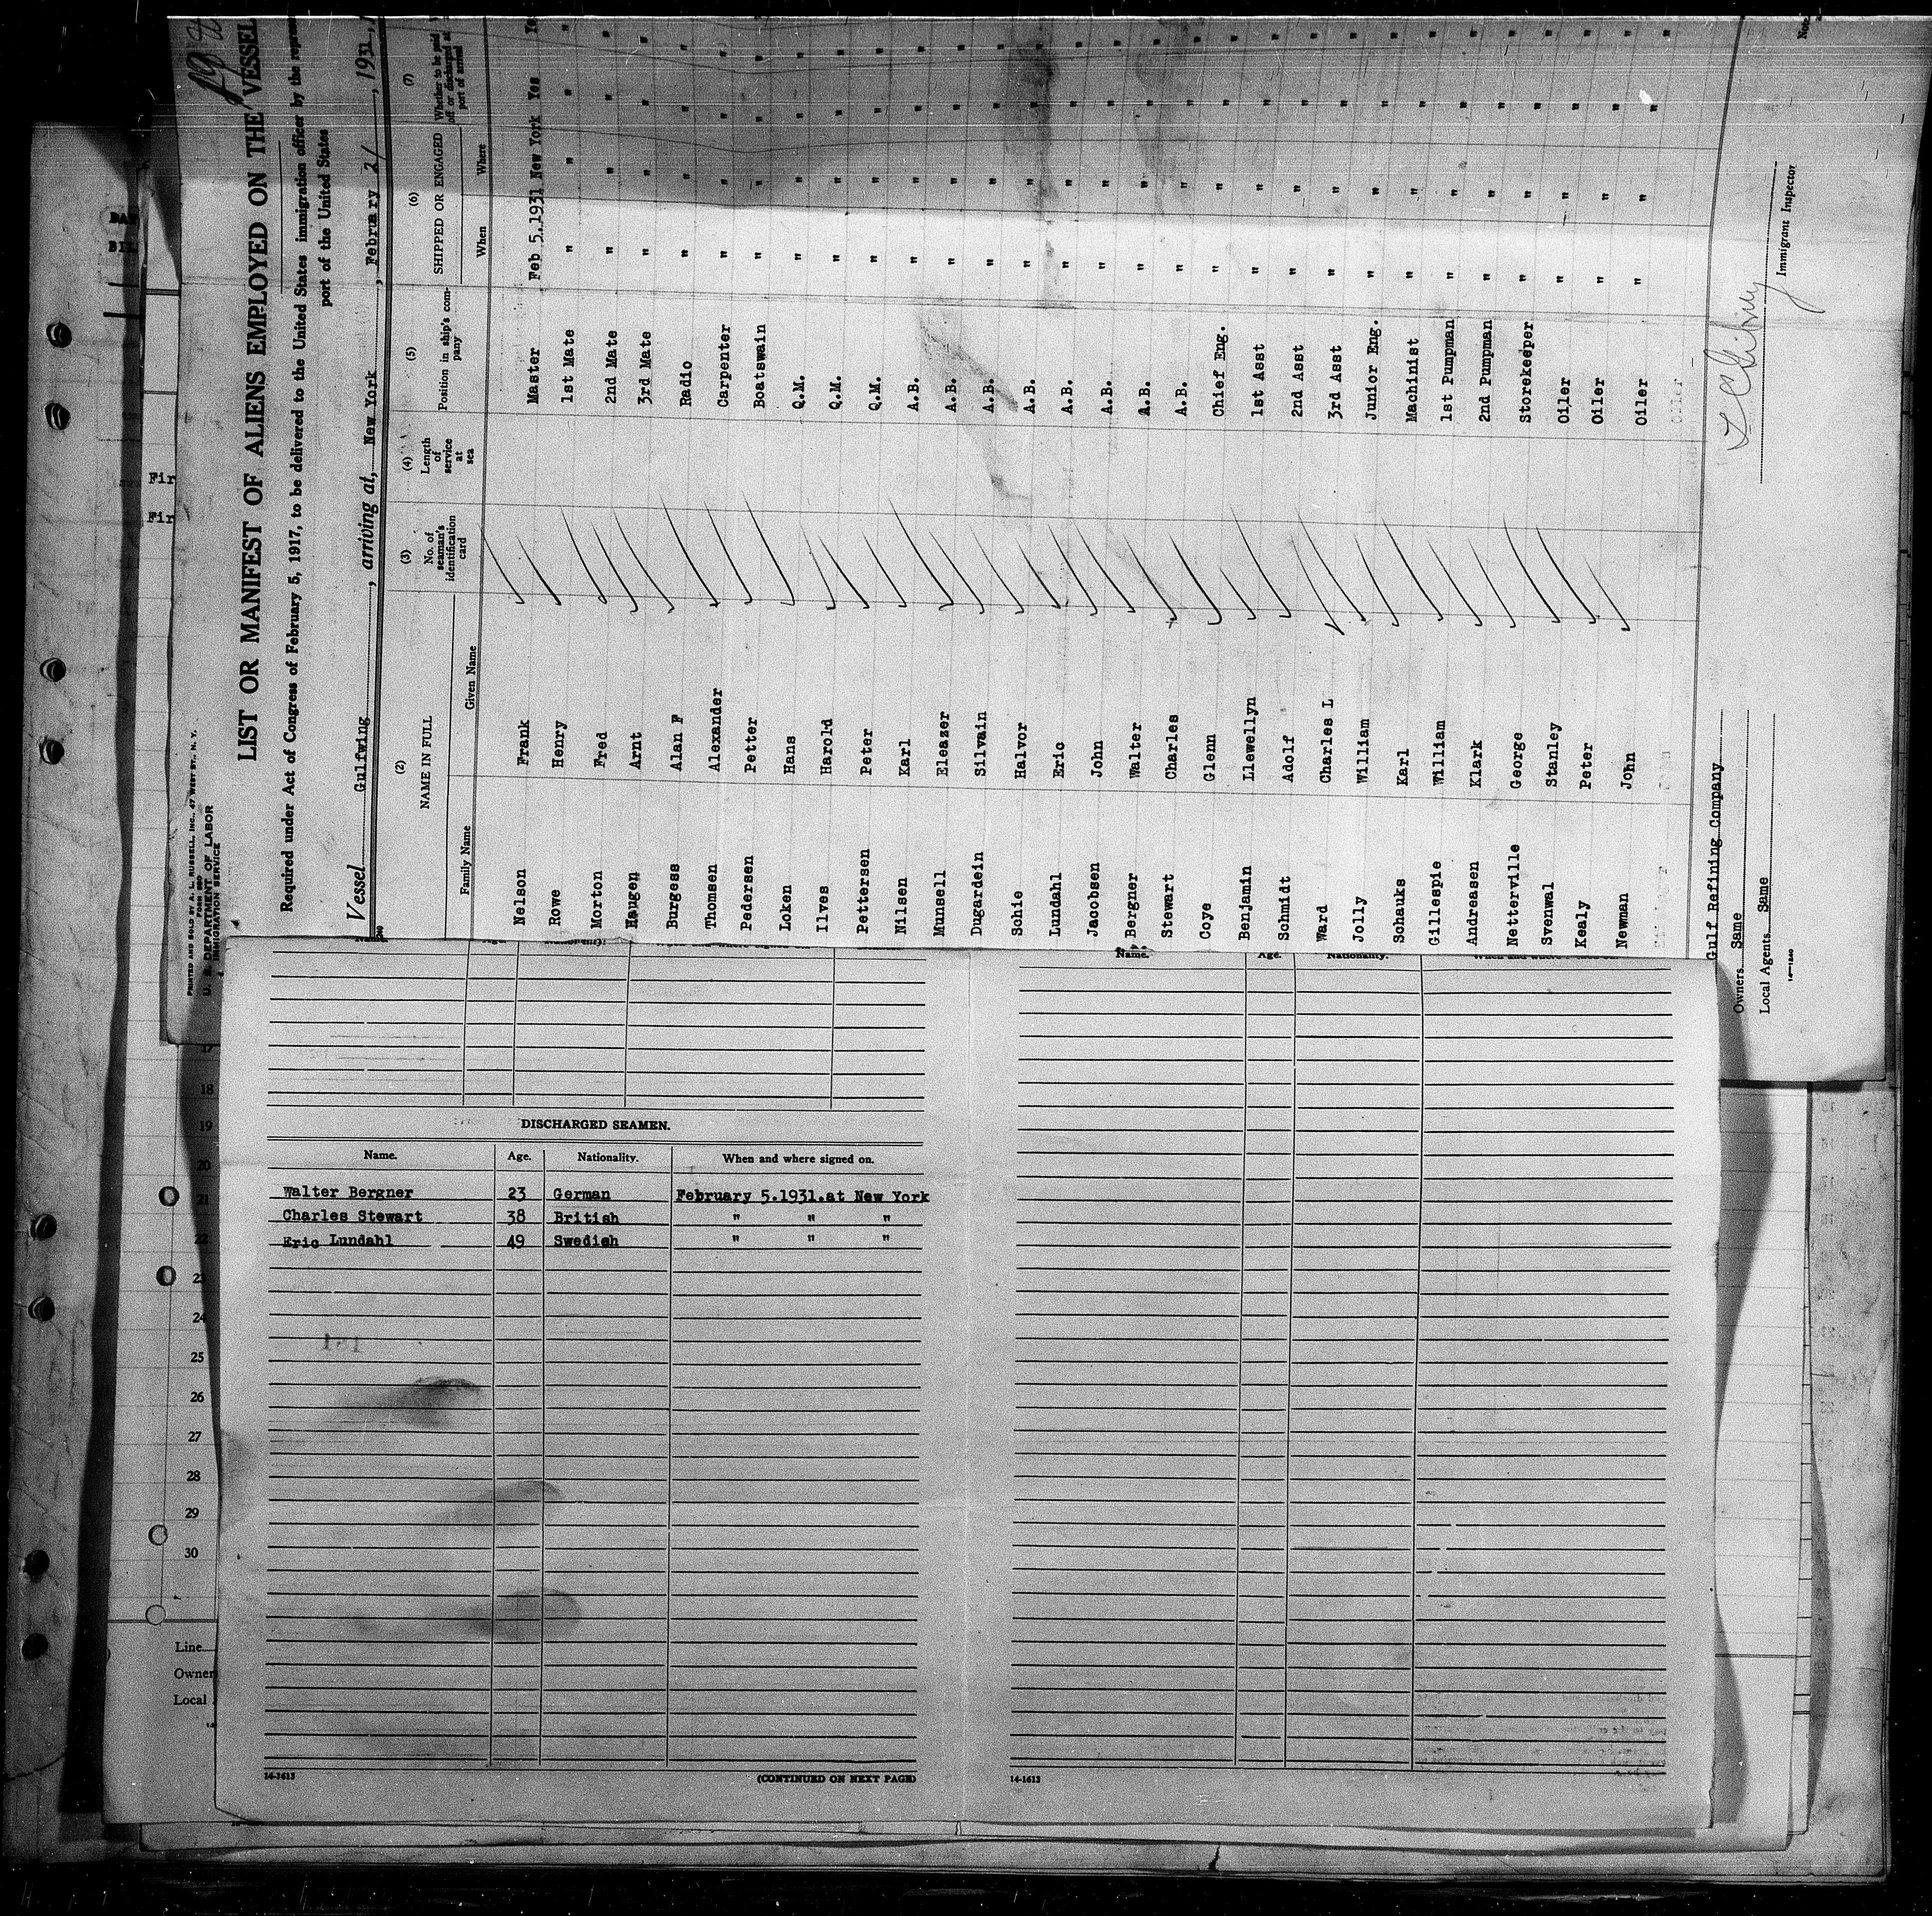 PRINTED AND SOLD BY A. L. RUSSELL, INC., 47 WEST ST., N. Y.
U. S. DEPARTMENT OF LABOR
IMMIGRATION SERVICE
LIST OR MANIFEST OF ALIENS EMPLOYED ON THE VESSEL
Required under Act of Congress of February 5, 1917, to be delivered to the United States immigration officer by the repres
port of the United States
Vessel Gulfwing, arriving at, New York, February 21, 1931
(2) (3) (4) (5) (6) (7)
NAME IN FULL
Family Name Given Name
No. of seaman's identification card
Length of service at sea
Position in ship's company
SHIPPED OR ENGAGED
When Where
Whether to be paid off or discharged at port of arrival
Nelson Frank Master Feb 5.1931 New York Yes
Rowe Henry 1st Mate " " "
Morton Fred 2nd Mate " " "
Haugen Arnt 3rd Mate " " "
Burgess Alan F Radio " " "
Thomsen Alexander Carpenter " " "
Pedersen Petter Boatswain " " "
Loken Hans Q.M. " " "
Ilves Harold Q.M. " " "
Pettersen Peter Q.M. " " "
Nilsen Karl A.B. " " "
Munsell Eleazer A.B. " " "
Dugardein Silvain A.B. " " "
Schie Halvor A.B. " " "
Lundahl Eric A.B. " " "
Jacobsen John A.B. " " "
Bergner Walter A.B. " " "
Stewart Charles A.B. " " "
Coye Glenn Chief Eng. " " "
Benjamin Llewellyn 1st Asst " " "
Schmidt Adolf 2nd Asst " " "
Ward Charles L 3rd Asst " " "
Jolly William Junior Eng. " " "
Schauks Karl Machinist " " "
Gillespie William 1st Pumpman " " "
Andreasen Klark 2nd Pumpman " " "
Netterville George Storekeeper " " "
Svenwal Stanley Oiler " " "
Kealy Peter Oiler " " "
Newman John Oiler " " "
Gulf Refining Company
Owners Same
Local Agents Same
Immigrant Inspector
Name. Age. Nationality.
DISCHARGED SEAMEN.
Name. Age. Nationality. When and where signed on.
Walter Bergner 23 German February 5.1931.at New York
Charles Stewart 38 British " " "
Eric Lundahl 49 Swedish " " "
14-1613
(CONTINUED ON NEXT PAGE)
14-1613
Fir
Fir
17
18
19
20
21
22
23
24
25
26
27
28
29
30
Line
Owner
Local